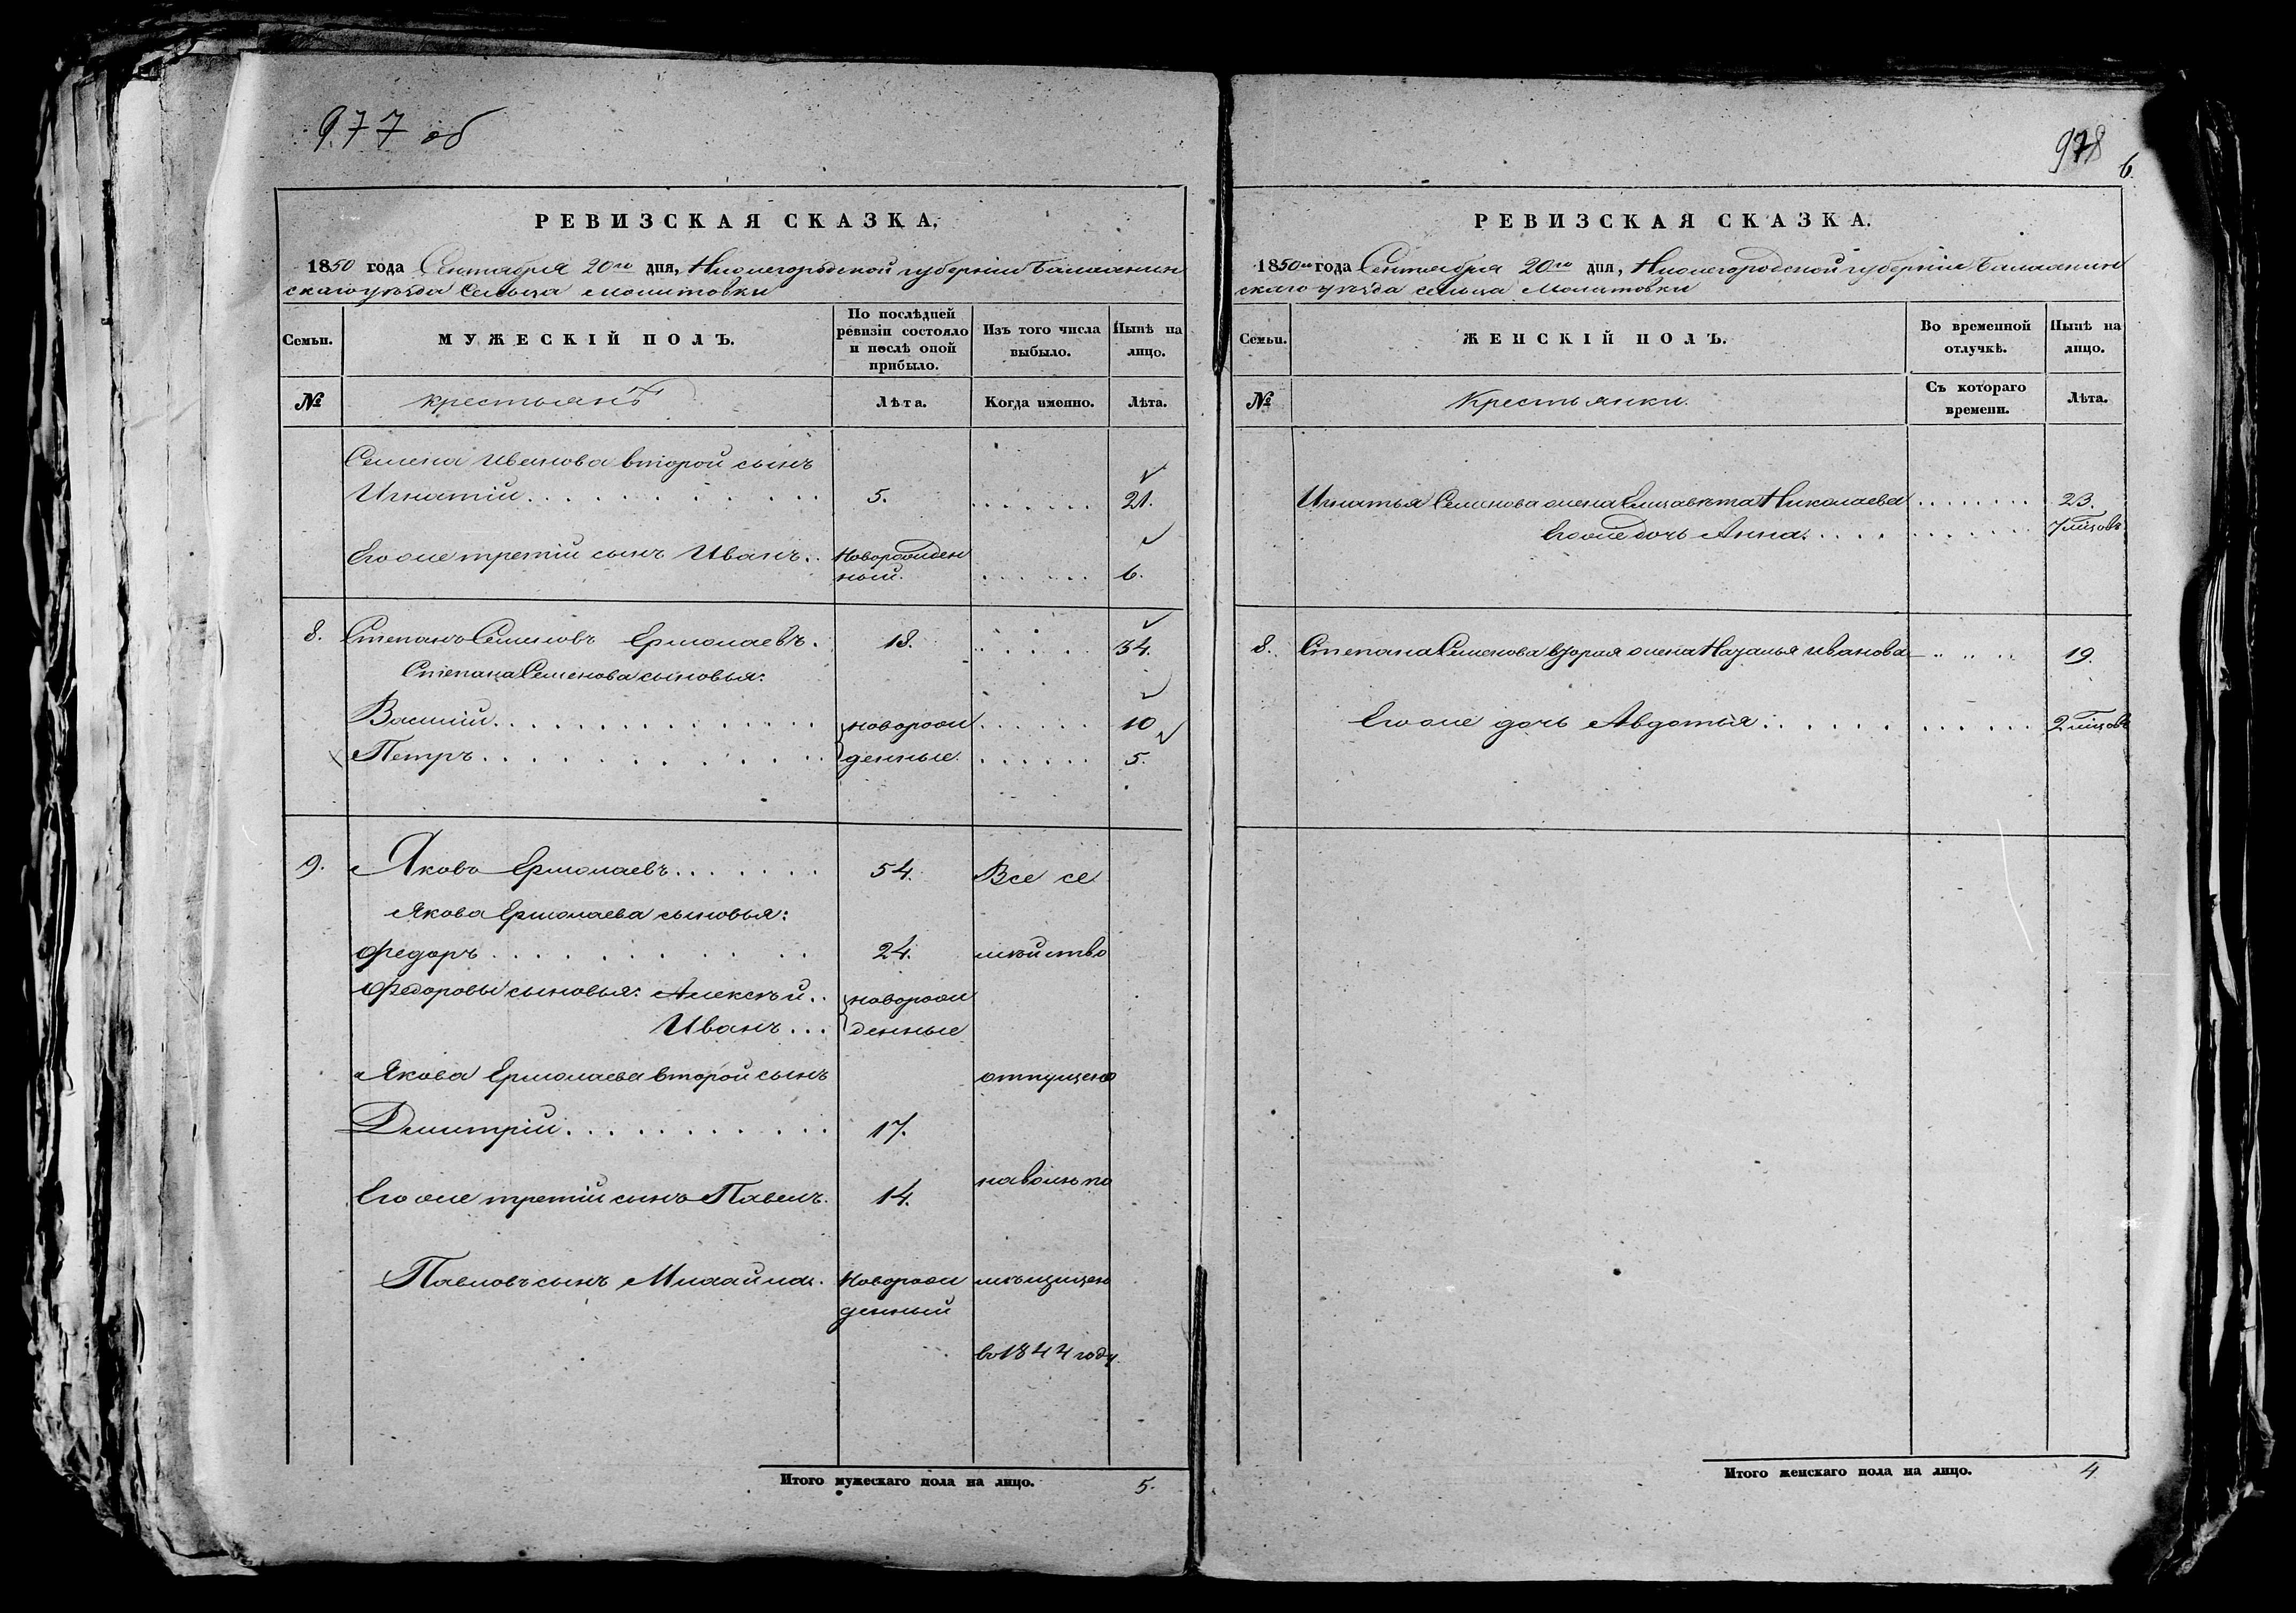 977 об
РЕВИЗСКАЯ СКАЗКА.
1850 года Сентября 20го дня, Нижегородской губерніи Балахнин
скаго уѣзда Сельца Молитовки
Семьи.
МУЖЕСКІЙ ПОЛЪ.
По послѣдней ревизіи состояло и послѣ оной прибыло.
Изъ того числа выбыло.
Нынѣ на лицо.
№
крестьянъ
Лѣта.
Когда именно.
Лѣта.
Семена Иванова второй сынъ
Игнатій. 5. 21.
Егоже третій сынъ Иванъ. Новорожден
ный. 6.
8. Степанъ Семеновъ Ермолаевъ. 18. 34.
Степана Семенова сыновья:
Василій. новорож 10
Петръ. денные. 5.
9. Яковъ Ермолаевъ. 54. Все се
Якова Ермолаева сыновья:
Федоръ. 24. мѣйство
Федоровы сыновья: Алексѣй. новорож
Иванъ. денные
Якова Ермолаева второй сынъ отпущено
Дмитрій. 17.
Егоже третій сынъ Павелъ. 14. на волю по
Павловъ сынъ Михайла. Новорож мѣщицею
денный
въ 1844 году.
Итого мужескаго пола на лицо. 5.
978
6.
РЕВИЗСКАЯ СКАЗКА.
1850го года Сентября 20го дня, Нижегородской губерніи Балахнин
скаго уѣзда сельца Молитовки
Семьи.
ЖЕНСКІЙ ПОЛЪ.
Во временной отлучкѣ.
Нынѣ на лицо.
№
Крестьянки.
Съ котораго времени.
Лѣта.
Игнатья Семенова жена Елизавѣта Николаева 23.
Егоже дочь Анна. 7 мѣцовъ
8. Степана Семенова вторая жена Наталья Иванова 19.
Егоже дочь Авдотья. 2 мѣцовъ
Итого женскаго пола на лицо. 4